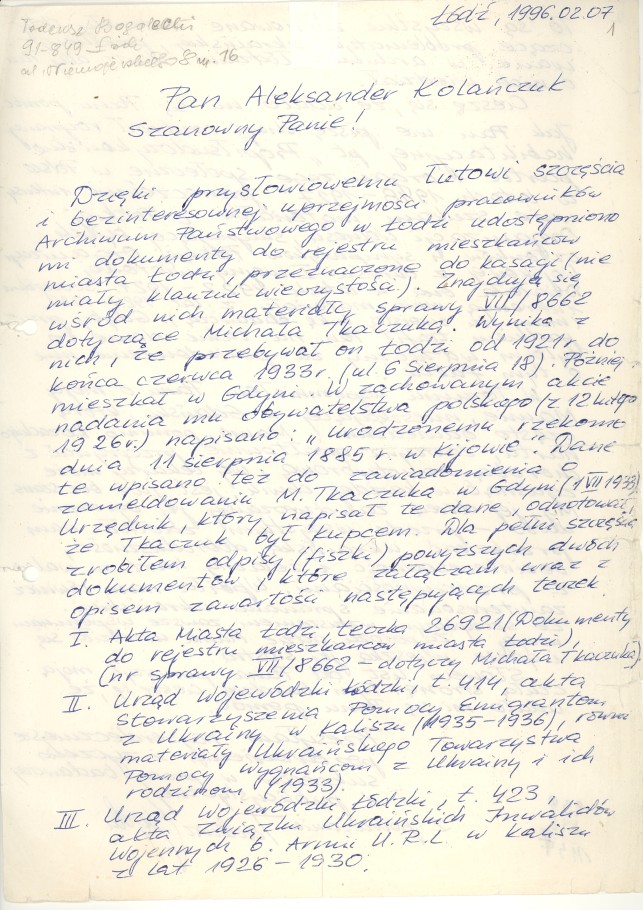 Łódź, 1996.02.07
1
Tadeusz Bogalecki
91-849 Łódź
m. 16
Pan Aleksander Kolańczuk
Szanowny Panie!
Dzięki przysłowiowemu łutowi szczęścia
i bezinteresownej uprzejmości pracowników
Archiwum Państwowego w Łodzi udostępniono
mi dokumenty do rejestru mieszkańców
miasta Łodzi, przeznaczone do kasacji (nie
miały klauzuli wieczystości). Znajdują się
wśród nich materiały sprawy VII/8662
dotyczące Michała Tkaczuka. Wynika z
nich, że przebywał on Łodzi od 1921r do
końca czerwca 1933r. (ul. 6 Sierpnia 18). Później
mieszkał w Gdyni. W zachowanym akcie
nadania mu obywatelstwa polskiego (z 12 lutego
1926r.) napisano: "urodzonemu rzekomo
dnia 11 sierpnia 1885 r. w Kijowie". Dane
te wpisano też do zawiadomienia o
zameldowaniu M. Tkaczuka w Gdyni (1 VII 1933)
Urzędnik, który napisał te dane, odnotował,
że Tkaczuk był kupcem. Dla pełni szczęścia
zrobiłem odpisy (fiszki) powyższych dwóch
dokumentów, które załączam wraz z
opisem zawartości następujących teczek.
I. Akta Miasta Łodzi, teczka 26921 (Dokumenty
do rejestru mieszkańców miasta Łodzi),
(nr sprawy VII/8662 - dotyczy Michała Tkaczuka).
II. Urząd Wojewódzki Łódzki, t. 414, akta
Stowarzyszenia Pomocy Emigrantom
z Ukrainy w Kaliszu (1935-1936),
materiały Ukraińskiego Towarzystwa
Pomocy Wygnańcom z Ukrainy i ich
rodzinom (1933).
III. Urząd Wojewódzki Łódzki, t. 423,
akta Związku Ukraińskich Inwalidów
Wojennych b. Armii U.R.L. w Kaliszu
z lat 1926-1930.